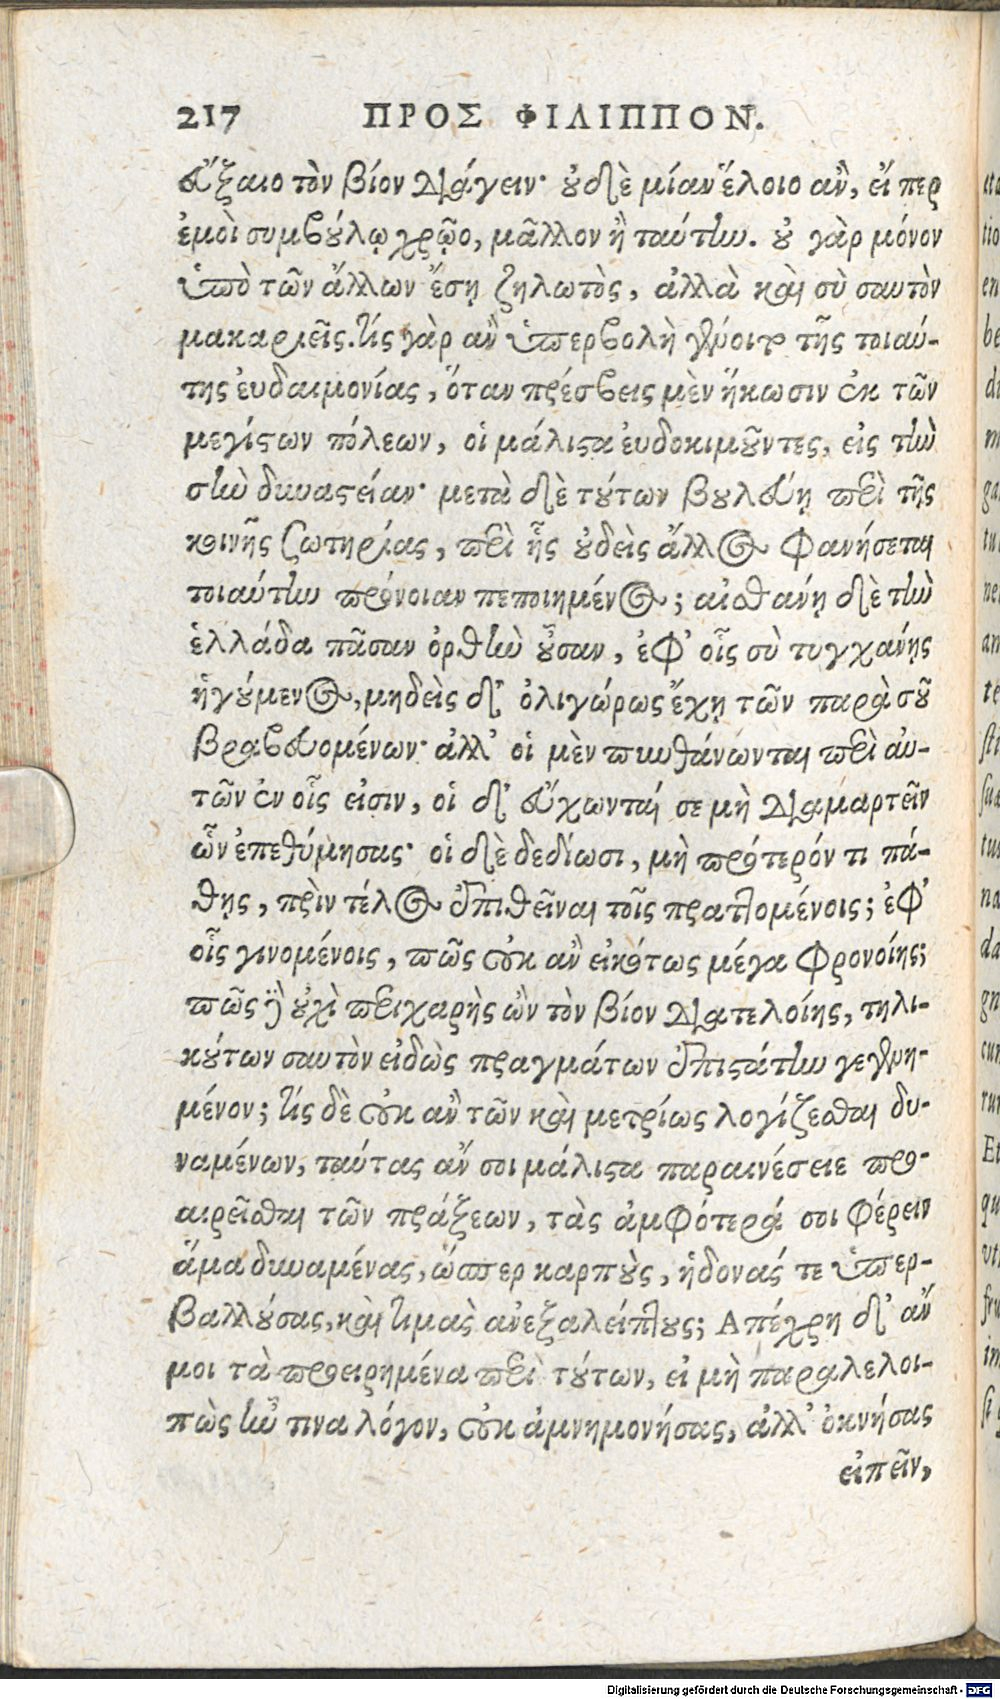 217 ΠΡΟΣ ΦΙΛΙΠΠΟΝ.
εὔξαιο τὸν βίον διάγειν· οὐδὲ μίαν ἕλοιο ἂν, εἴ περ
ἐμοὶ συμβούλῳ χρῷο, μᾶλλον ἢ ταύτην. οὐ γὰρ μόνον
ὑπὸ τῶν ἄλλων ἔσῃ ζηλωτὸς, ἀλλὰ καὶ σὺ σαυτὸν
μακαριεῖς. τίς γὰρ ἂν ὑπερβολὴ γένοιτο τῆς τοιαύ-
της εὐδαιμονίας, ὅταν πρέσβεις μὲν ἥκωσιν ἐκ τῶν
μεγίστων πόλεων, οἱ μάλιστα εὐδοκιμοῦντες, εἰς τὴν
σὴν δυναστείαν· μετὰ δὲ τούτων βουλεύῃ περὶ τῆς
κοινῆς σωτηρίας, περὶ ἧς οὐδεὶς ἄλλος φανήσεται
τοιαύτην πρόνοιαν πεποιημένος; αἰσθάνῃ δὲ τὴν
ἑλλάδα πᾶσαν ὀρθὴν οὖσαν, ἐφ' οἷς σὺ τυγχάνῃς
ἡγούμενος, μηδεὶς δ' ὀλιγώρως ἔχῃ τῶν παρὰ σοῦ
βραβευομένων· ἀλλ' οἱ μὲν πυνθάνωνται περὶ αὐ-
τῶν ἐν οἷς εἰσιν, οἱ δ' εὔχωνταί σε μὴ διαμαρτεῖν
ὧν ἐπεθύμησας· οἱ δὲ δεδίωσι, μὴ πρότερόν τι πά-
θῃς, πρὶν τέλος ἐπιθεῖναι τοῖς πραττομένοις; ἐφ'
οἷς γινομένοις, πῶς οὐκ ἂν εἰκότως μέγα φρονοίης;
πῶς δ' οὐχὶ περιχαρὴς ὢν τὸν βίον διατελοίης, τηλι-
κούτων σαυτὸν εἰδὼς πραγμάτων ἐπιστάτην γεγενη-
μένον; τίς δὲ οὐκ ἂν τῶν καὶ μετρίως λογίζεσθαι δυ-
ναμένων, ταύτας ἄν σοι μάλιστα παραινέσειε προ-
αιρεῖσθαι τῶν πράξεων, τὰς ἀμφότερά σοι φέρειν
ἅμα δυναμένας, ὥσπερ καρποὺς, ἡδονάς τε ὑπερ-
βαλλούσας, καὶ τιμὰς ἀνεξαλείπτους; Απέχρη δ' ἄν
μοι τὰ προειρημένα περὶ τούτων, εἰ μὴ παραλελοι-
πὼς ἦν τινα λόγον, οὐκ ἀμνημονήσας, ἀλλ' ὀκνήσας
εἰπεῖν,
Digitalisierung gefördert durch die Deutsche Forschungsgemeinschaft - DFG